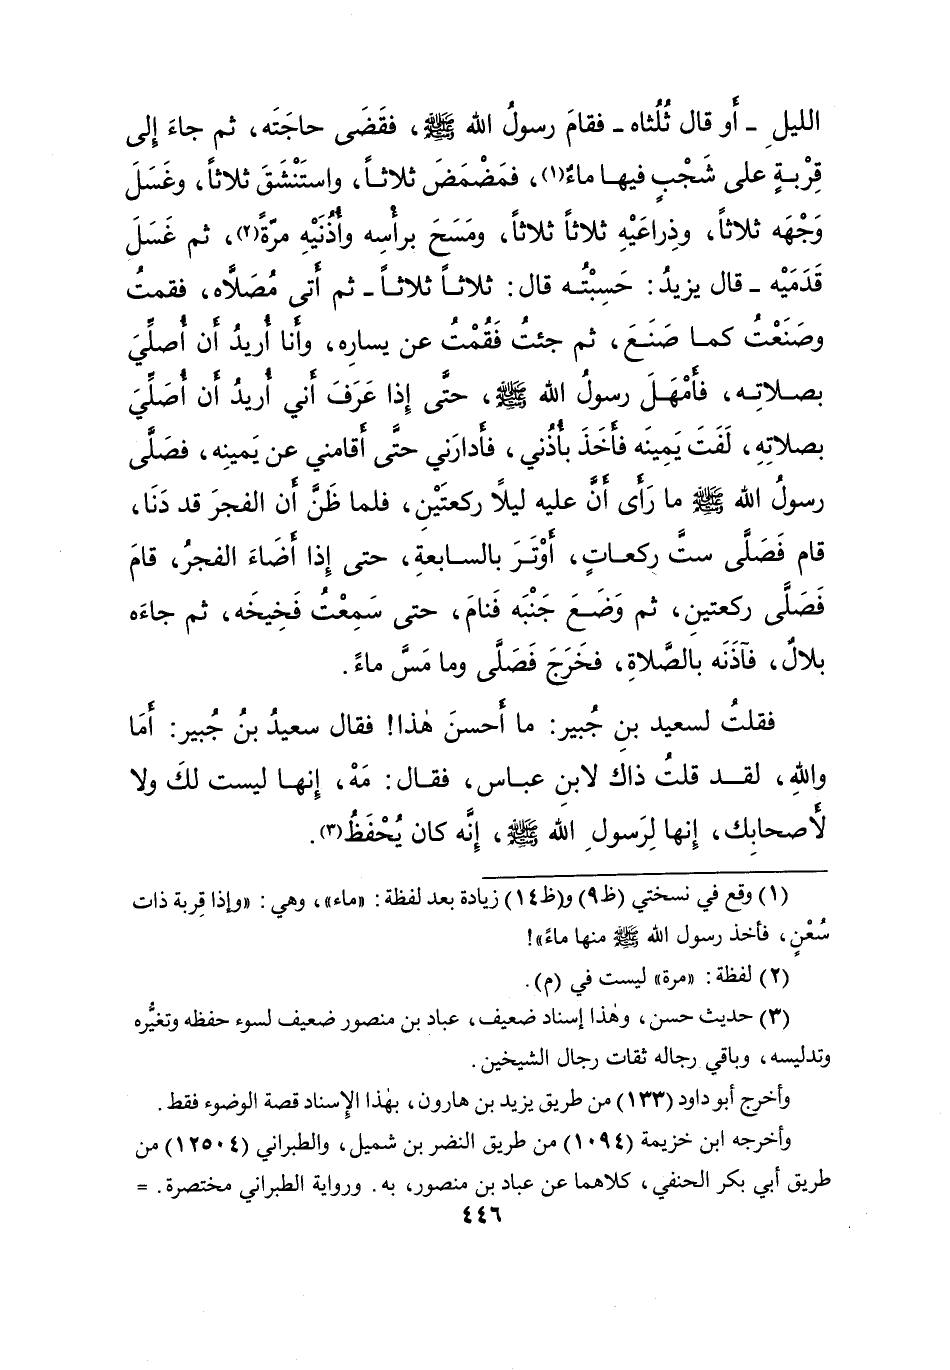 الليلِ ـ أَو قال ثُلُثاه ـ فقامَ رسولُ الله ﷺ، فقَضَى حاجَتَه، ثم جاءَ إلى
قِرْبةٍ على شَجْبٍ فيها ماءٌ(١)، فمَضْمَضَ ثلاثاً، واستَنْشَقَ ثلاثاً، وغَسَلَ
وَجْهَه ثلاثاً، وذِراعَيْهِ ثلاثاً ثلاثاً، ومَسَحَ برأْسِه وأُذُنَيْهِ مرّةً(٢)، ثم غَسَلَ
قَدَمَيْه ـ قال يزيدُ: حَسِبْتُه قال: ثلاثاً ثلاثاً ـ ثم أَتى مُصَلَّاه، فقمتُ
وصَنَعْتُ كما صَنَعَ، ثم جئتُ فَقُمْتُ عن يسارِه، وأَنا أُريدُ أَن أُصلِّيَ
بصلاتِه، فأَمْهَلَ رسولُ الله ﷺ، حتَّى إذا عَرَفَ أَني أُريدُ أَن أُصَلِّيَ
بصلاتِهِ، لَفَتَ يَمِينَه فأَخَذَ بأُذُني، فأَدارَني حتَّى أَقامني عن يَمينِه، فصَلَّى
رسولُ الله ﷺ ما رَأَى أَنَّ عليه ليلًا ركعتَيْنِ، فلما ظَنَّ أَن الفجرَ قد دَنَا،
قام فَصَلَّى ستَّ ركعاتٍ، أَوْتَرَ بالسابعةِ، حتى إذا أَضَاءَ الفجرُ، قامَ
فَصَلَّى ركعتينِ، ثم وَضَعَ جَنْبَه فَنامَ، حتى سَمِعْتُ فَخِيخَه، ثم جاءَه
بلالٌ، فَآذَنَه بالصَّلاةِ، فخَرَجَ فَصَلَّى وما مَسَّ ماءً.
فقلتُ لسعيد بن جُبير: ما أَحسنَ هٰذا! فقال سعيدُ بنُ جُبير: أَمَا
واللهِ، لقد قلتُ ذاك لابنِ عباس، فقال: مَهْ، إنها ليست لكَ ولا
لأَصحابِك، إنها لِرَسولِ الله ﷺ، إنَّه كان يُحْفَظُ(٣).
(١) وقع في نسختي (ظ٩) و(ظ١٤) زيادة بعد لفظة: «ماء»، وهي: «وإذا قِربة ذات
سُعْنٍ، فأخذ رسول الله ﷺ منها ماءً»!
(٢) لفظة: «مرة» ليست في (م).
(٣) حديث حسن، وهٰذا إسناد ضعيف، عباد بن منصور ضعيف لسوء حفظه وتغيُّره
وتدليسه، وباقي رجاله ثقات رجال الشيخين.
وأخرج أبو داود (١٣٣) من طريق يزيد بن هارون، بهٰذا الإسناد قصة الوضوء فقط.
وأخرجه ابن خزيمة (١٠٩٤) من طريق النضر بن شميل، والطبراني (١٢٥٠٤) من
طريق أبي بكر الحنفي، كلاهما عن عباد بن منصور، به. ورواية الطبراني مختصرة. =
٤٤٦